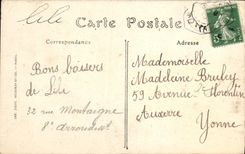 Lili
Carte Postale
Correspondance
Adresse
Bons baisers
de Lili
32 rue Montaigne
8e Arrondisst
Mademoiselle
Madeleine Bruley
59 Avenue St Florentin
Auxerre
Yonne